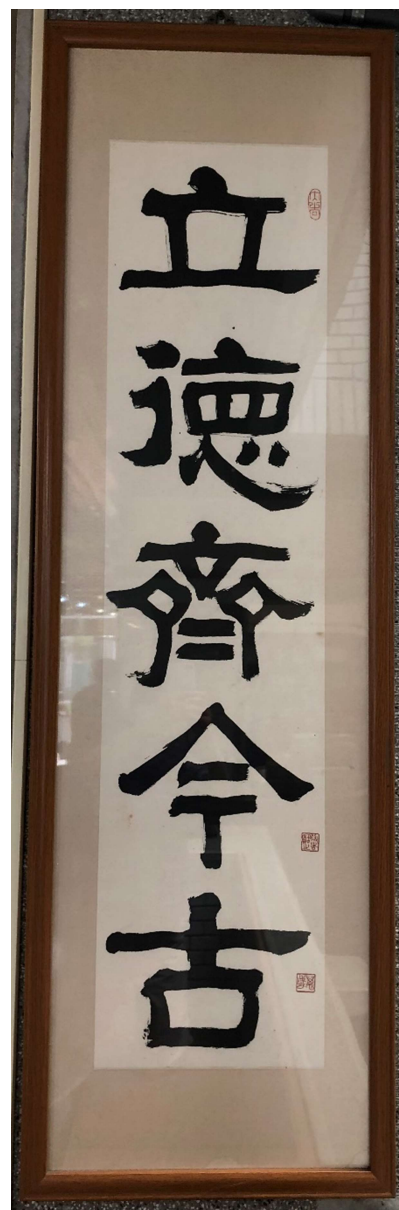 立德齊今古